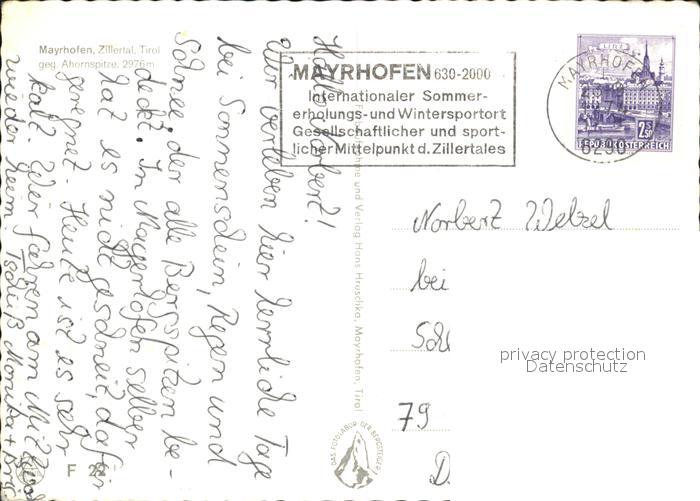 Mayrhofen, Zillertal, Tirol
geg. Ahornspitze, 2976m
MAYRHOFEN 630-2000
Internationaler Sommer-
erholungs- und Wintersportort
Gesellschaftlicher und sport-
licher Mittelpunkt d. Zillertales
MAYRHOFEN
6290
LINZ
2S50
REPUBLIK ÖSTERREICH
Hallo Norbert!
Wir verleben hier herrliche Tage
bei Sonnenschein, Regen und
Schnee, der alle Bergspitzen be-
deckt. In Mayrhofen selber
hat es nicht geschneit, dafür
geregnet. Heute ist es sehr
kalt. Wir fahren am
wieder heim. Tschüß Monika +
Verlag Hans Hruschka, Mayrhofen, Tirol
DAS FOTOLABOR DER BERGSTEIGER
F 22
Norbert Wetzel
bei
79
privacy protection
Datenschutz